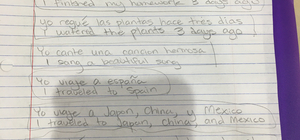 I finished my homework 3 days ago
yo regué las plantas hace tres dias
I watered the plants 3 days ago
Yo cante una cancion hermosa
I sang a beautiful song
Yo viaje a españa
I traveled to Spain
Yo viaje a Japon, China, y Mexico
I traveled to Japon, China, and Mexico